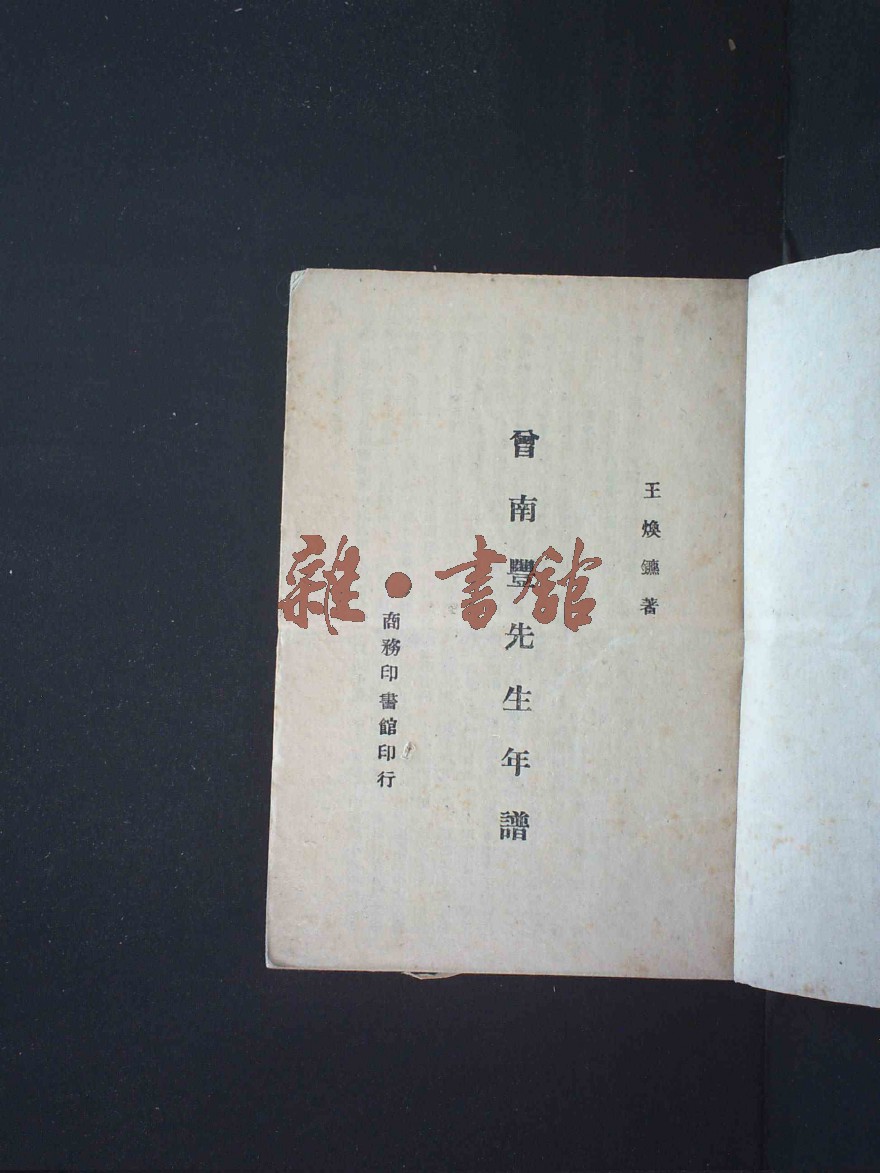 王煥鑣著
曾南豐先生年譜
商務印書館印行
雜·書館